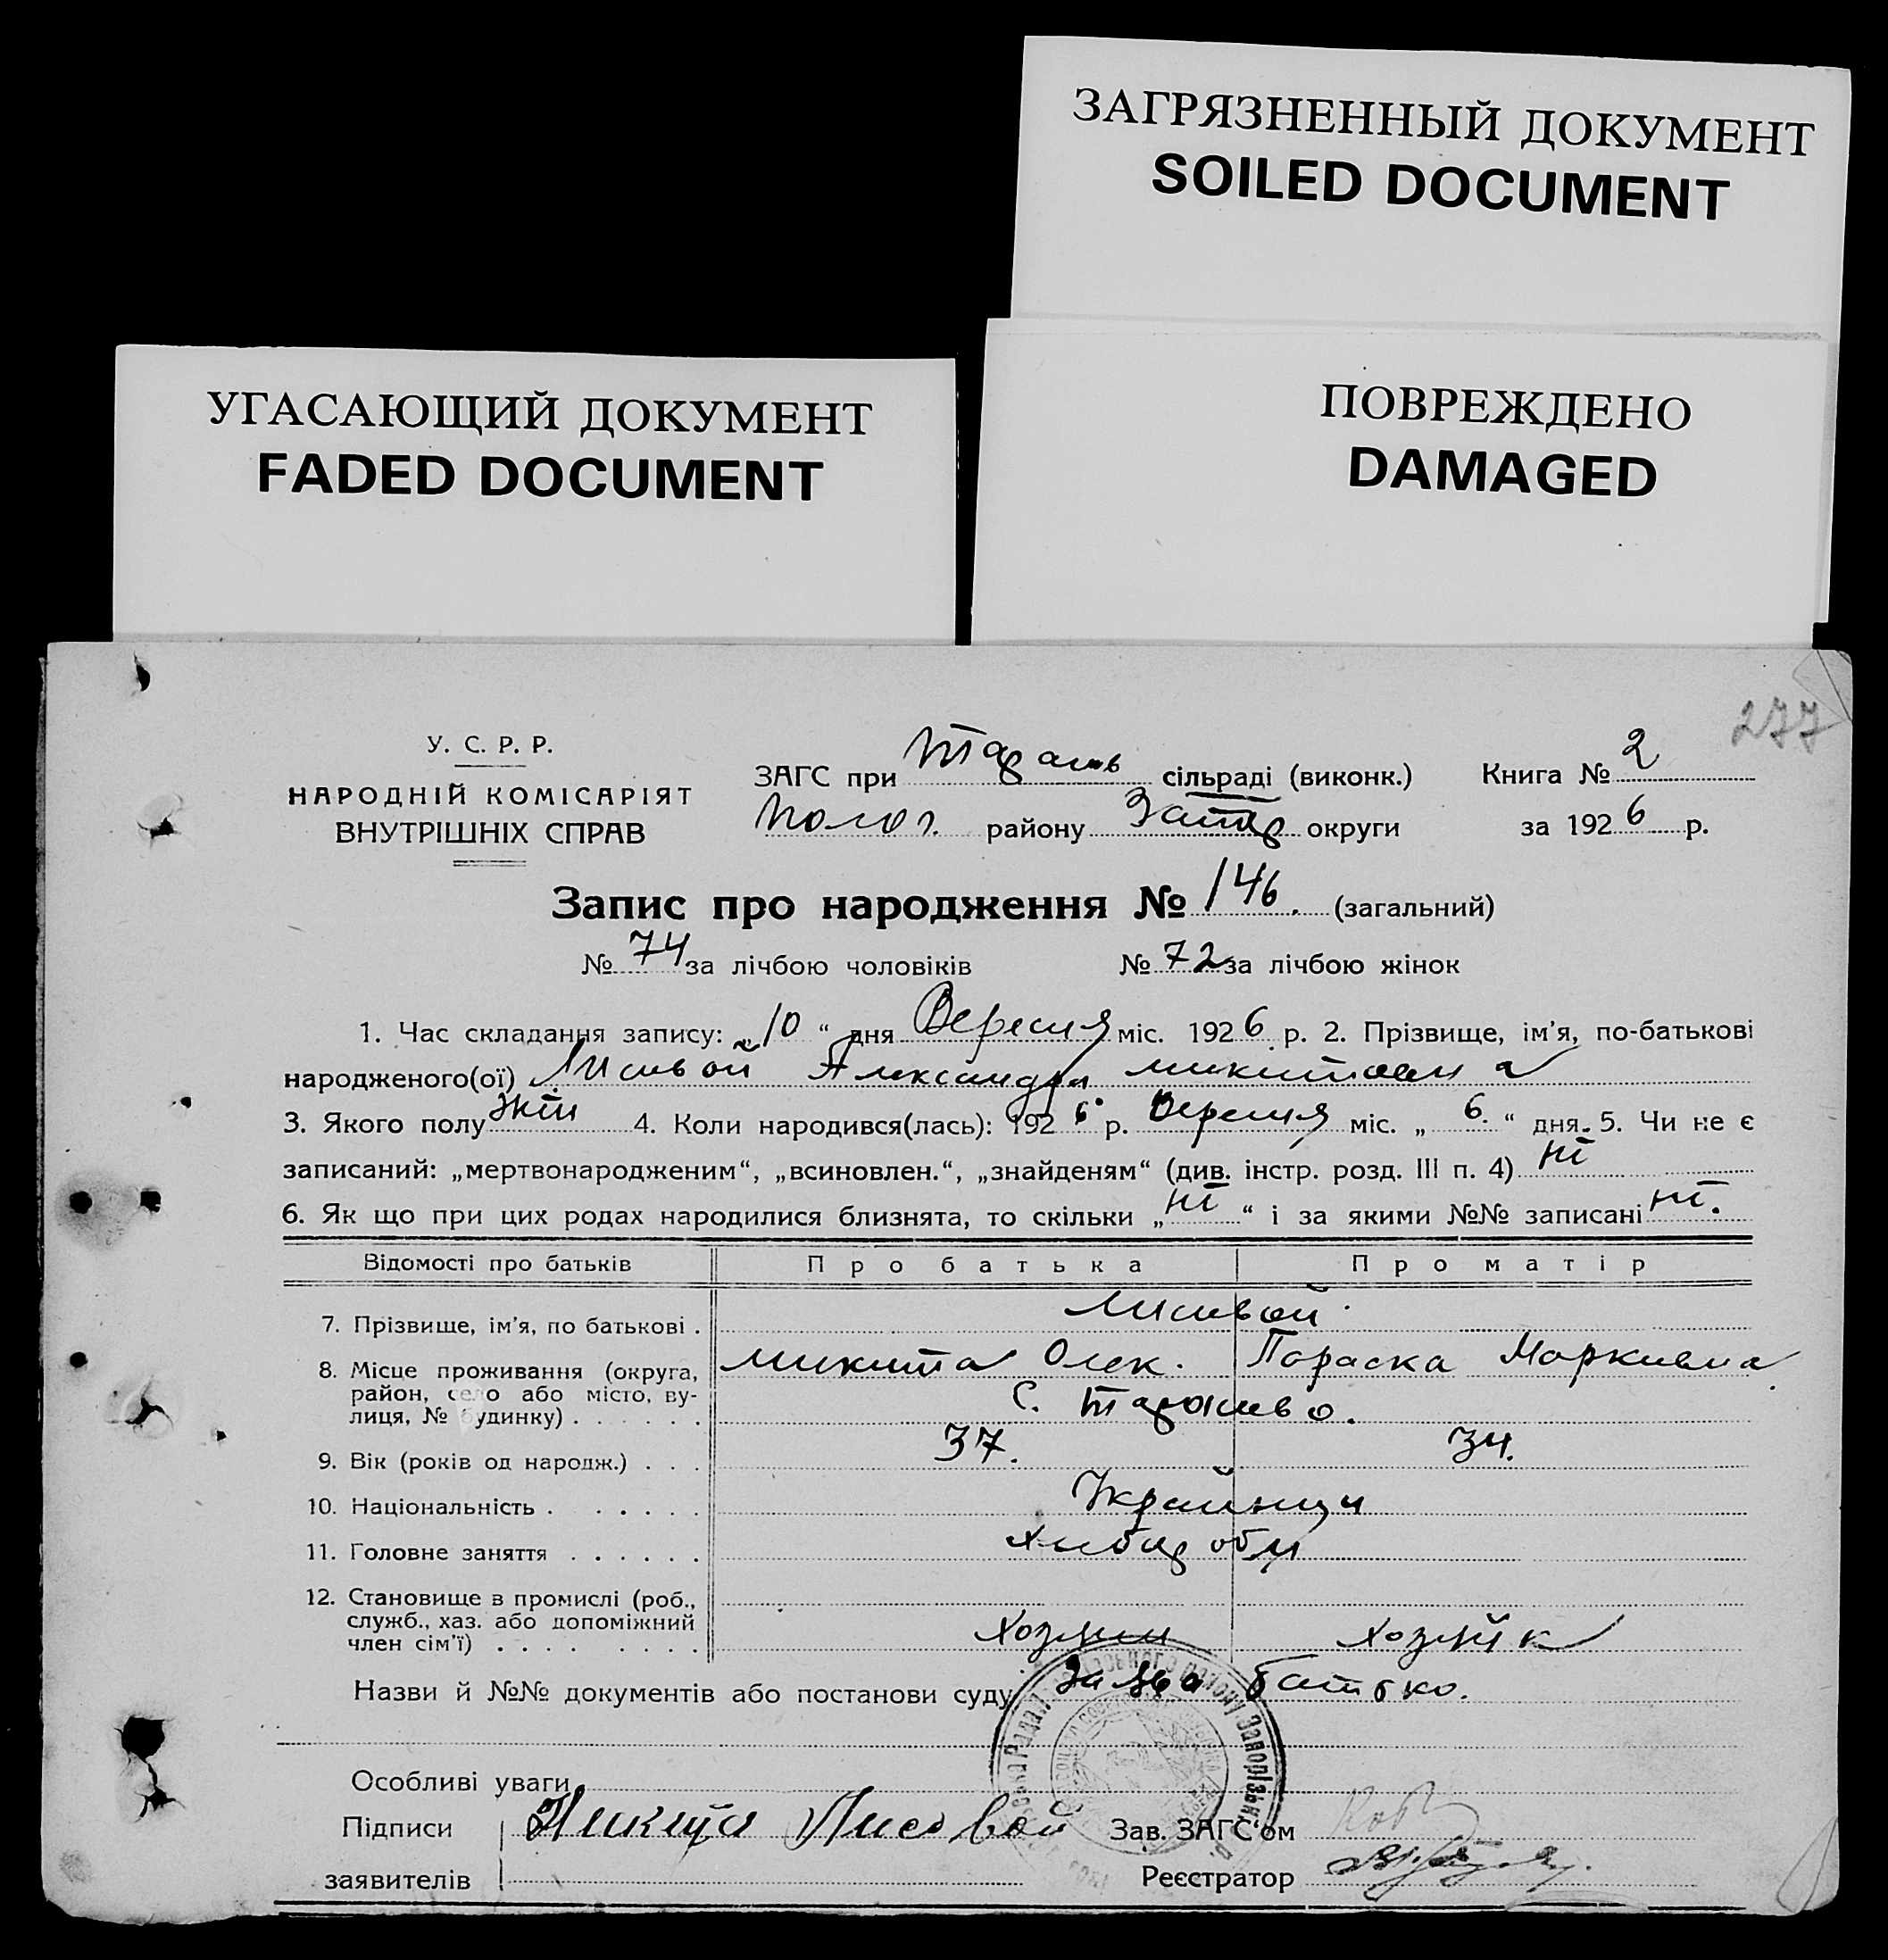 ЗАГРЯЗНЕННЫЙ ДОКУМЕНТ
SOILED DOCUMENT
УГАСАЮЩИЙ ДОКУМЕНТ
FADED DOCUMENT
ПОВРЕЖДЕНО
DAMAGED
277
У. С. Р. Р.
НАРОДНІЙ КОМІСАРІЯТ
ВНУТРІШНІХ СПРАВ
ЗАГС при сільраді (виконк.) Книга № 2
Полог. району Запор округи за 1926 р.
Запис про народження № 146. (загальний)
№ 74 за лічбою чоловіків № 72 за лічбою жінок
1. Час складання запису: „10“ дня Вересня міс. 1926 р. 2. Прізвище, ім'я, по-батькові
народженого(ої) Лисивой Александра
3. Якого полу жін 4. Коли народився(лась): 1926 р. Вересня міс. „6.“ дня. 5. Чи не є
записаний: „мертвонародженим“, „всиновлен.“, „знайденям“ (див. інстр. розд. III п. 4) ні
6. Як що при цих родах народилися близнята, то скільки „ні“ і за якими №№ записані ні.
Відомості про батьків Про батька Про матір
7. Прізвище, ім'я, по батькові . Лисивой
8. Місце проживання (округа, Микита Олек. Параска Маркивна
район, село або місто, ву-
лиця, № будинку) . . . . . . С.
9. Вік (років од народж.) . . . 37. 34.
10. Національність . . . . . . Украйнци
11. Головне заняття . . . . . . хлибороби
12. Становище в промислі (роб.,
служб., хаз. або допоміжний
член сім'ї) . . . . . . . . Хозяин хозяйк
Назви й №№ документів або постанови суду батько.
Особливі уваги
Підписи Никита Лисовой Зав. ЗАГС'ом
заявителів Реєстратор